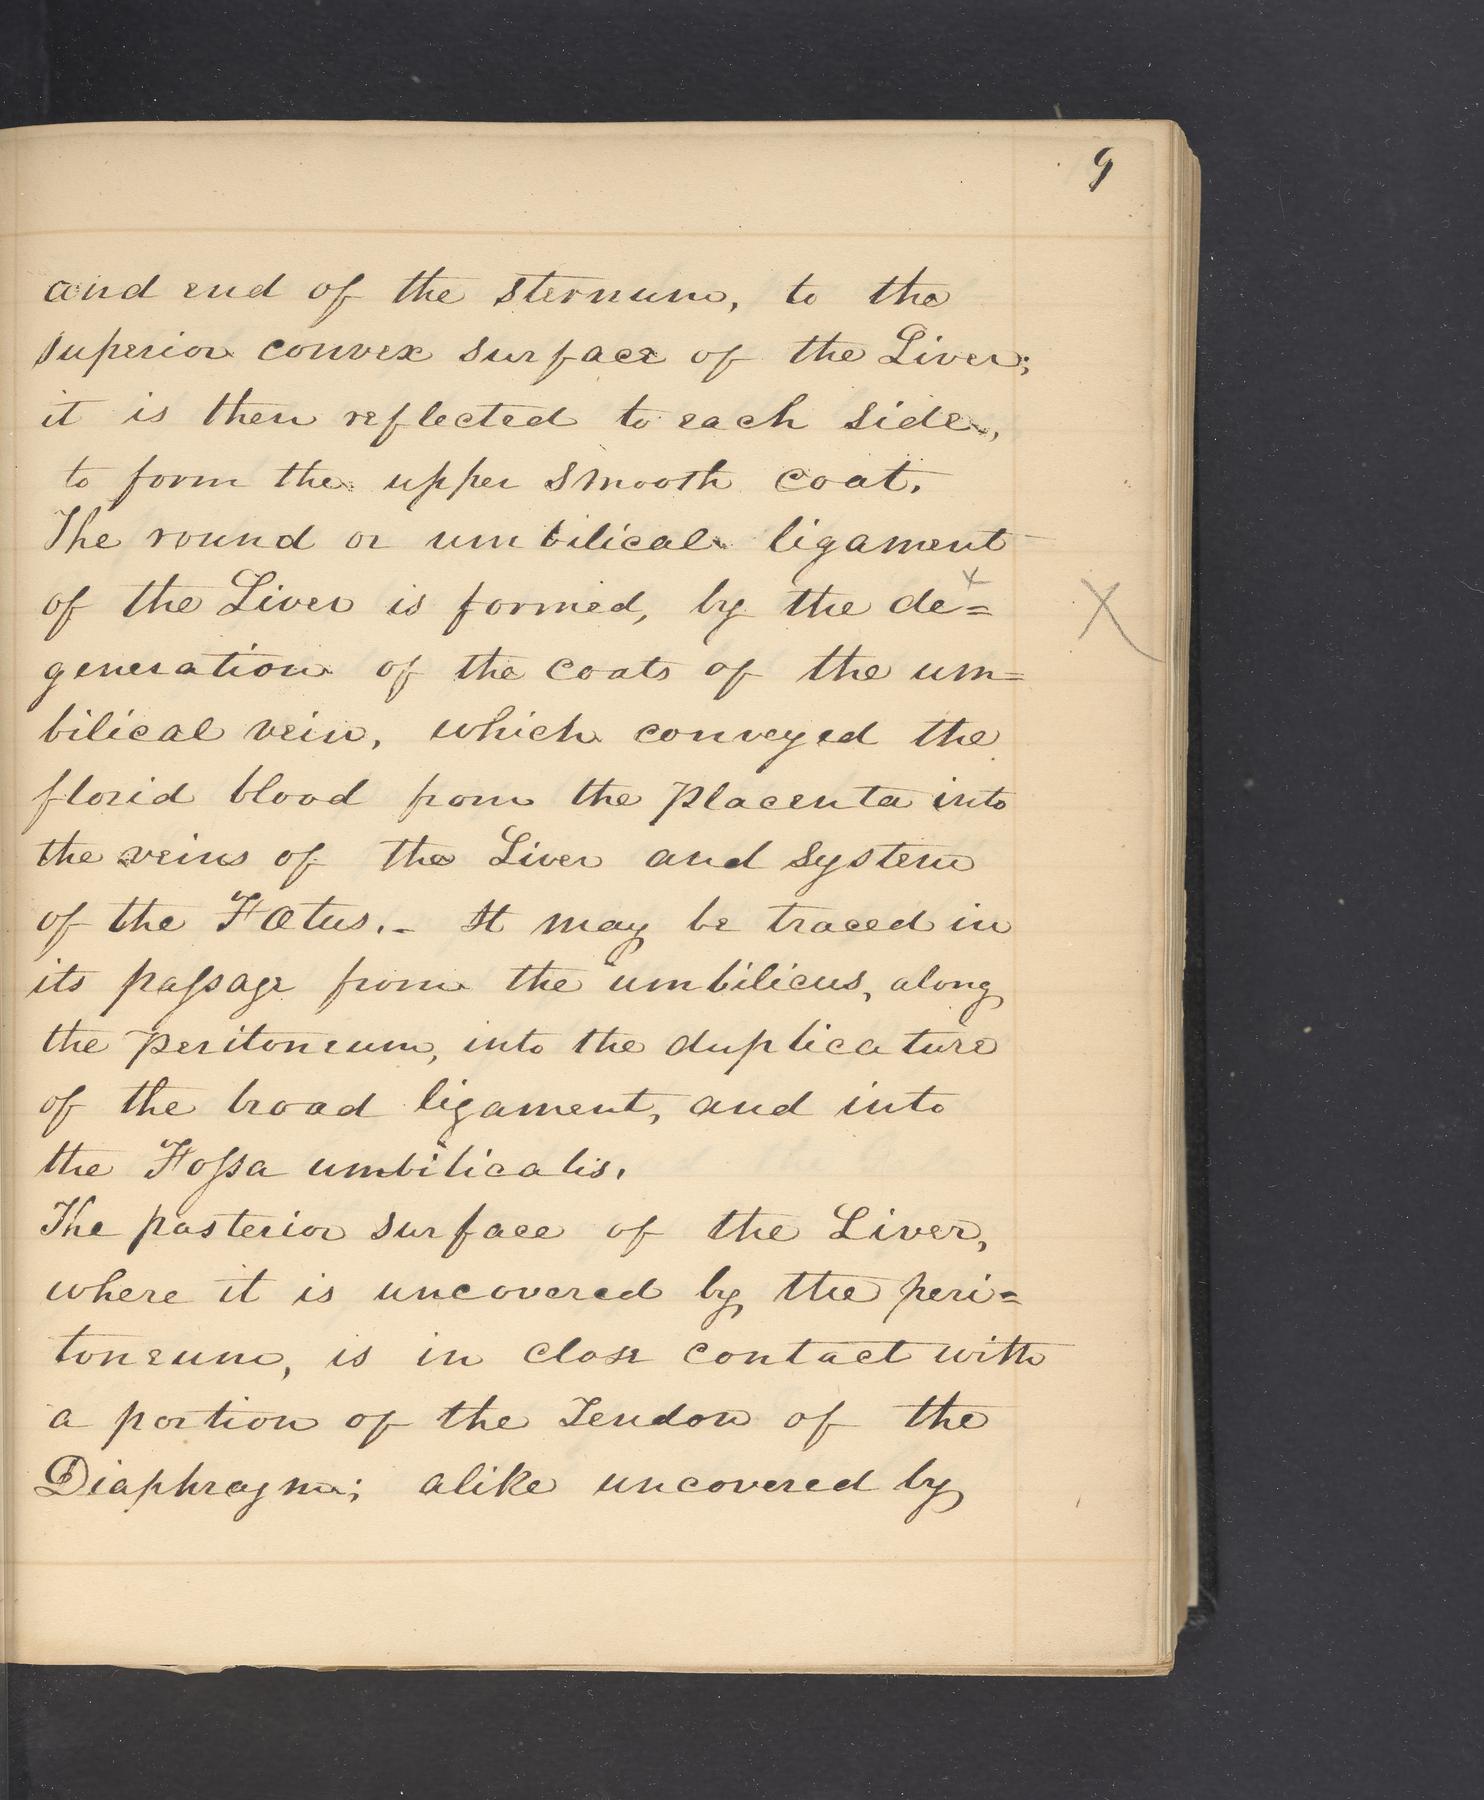 9
and end of the sternum, to the
superior convex surface of the Liver;
it is then reflected to each side,
to form the upper smooth coat.
The round or umbilical ligament
of the Liver is formed, by the de=
generation of the coats of the um=
bilical vein, which conveyed the
florid blood from the Placenta into
the veins of the Liver and system
of the Fœtus.- It may be traced in
its paſsage from the umbilicus, along
the Peritoneum, into the duplicature
of the broad ligament, and into
the Foſsa umbilicalis.
The posterior surface of the Liver,
where it is uncovered by the peri=
toneum, is in close contact with
a portion of the Tendon of the
Diaphragm; alike uncovered by